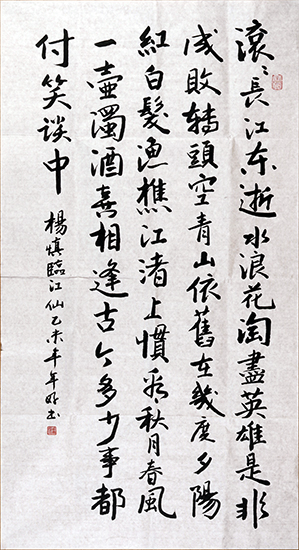 滚〻長江东逝水浪花淘盡英雄是非
成敗轉頭空青山依舊在幾度夕陽
紅白髮渔樵江渚上慣看秋月春風
一壺濁酒喜相逢古今多少事都
付笑谈中
楊慎臨江仙乙未年书